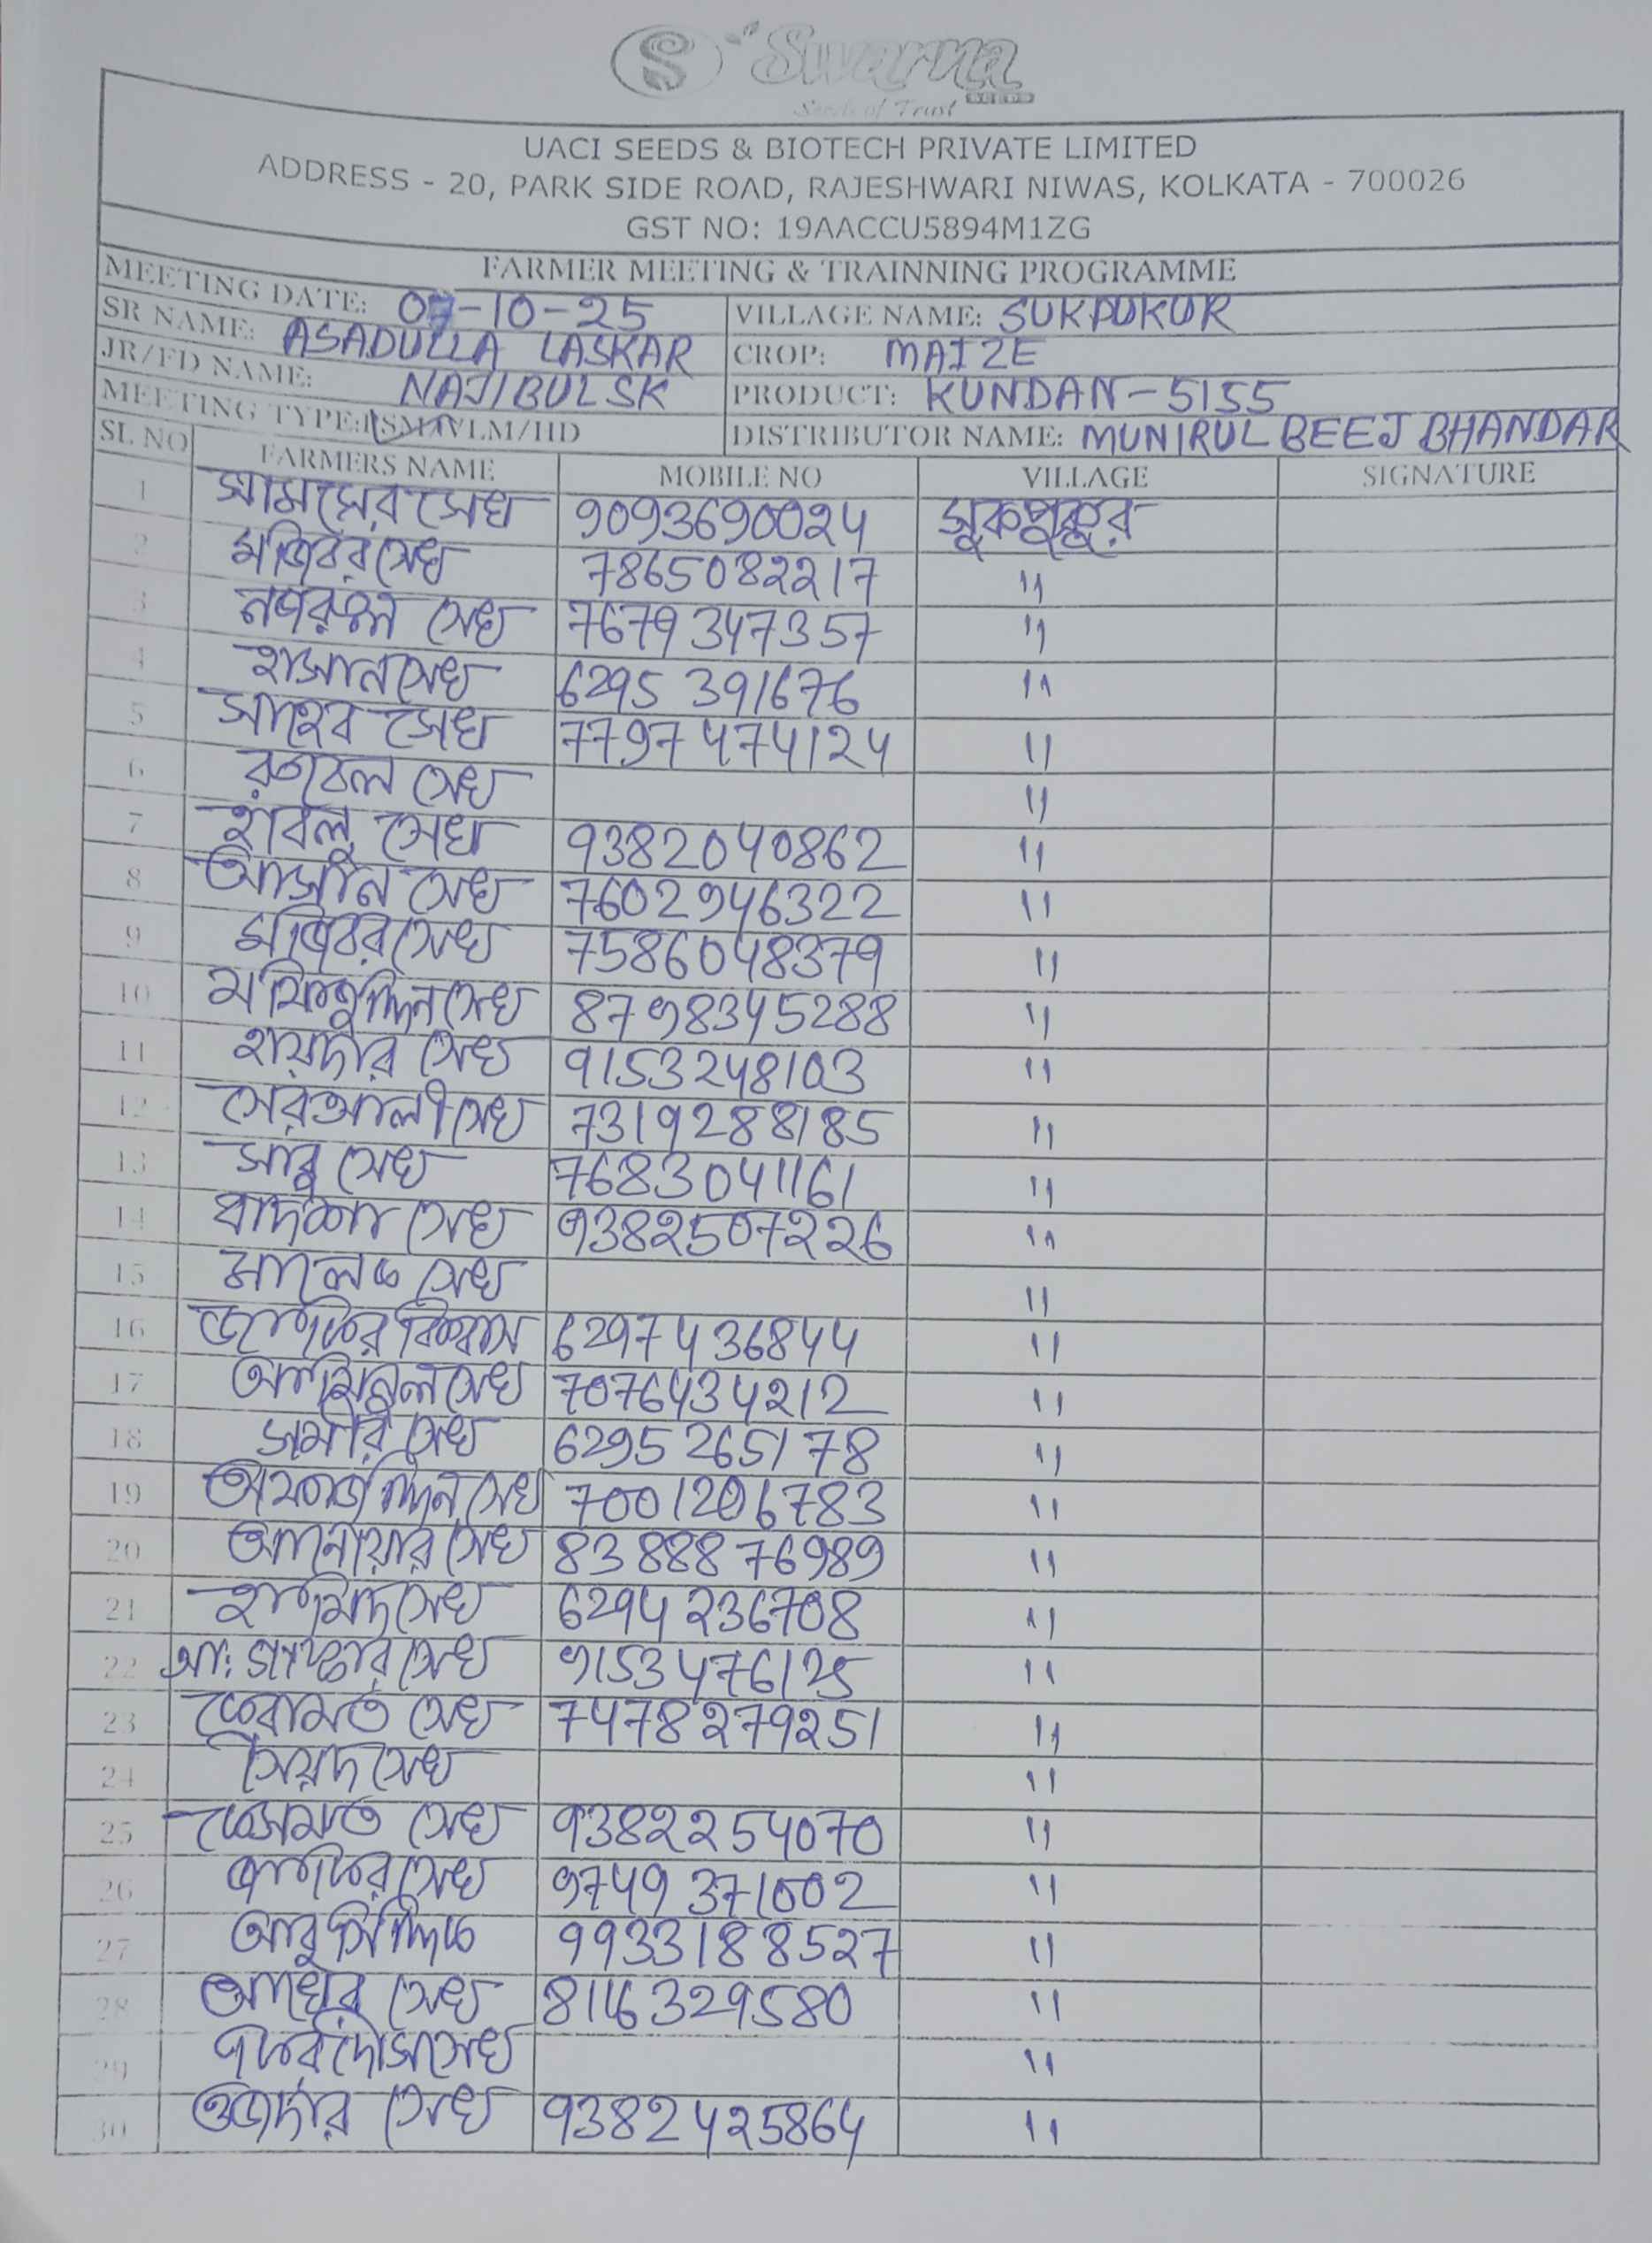 Swarna
Seeds of Trust
UACI SEEDS & BIOTECH PRIVATE LIMITED
ADDRESS - 20, PARK SIDE ROAD, RAJESHWARI NIWAS, KOLKATA - 700026
GST NO: 19AACCU5894M1ZG
FARMER MEETING & TRAINNING PROGRAMME
MEETING DATE: 07-10-25 VILLAGE NAME: SUKPUKUR
SR NAME: ASADULLA LASKAR CROP: MAIZE
JR/FD NAME: NAJIBUL SK PRODUCT: KUNDAN-5155
MEETING TYPE: /VLM/HD DISTRIBUTOR NAME: MUNIRUL BEEJ BHANDAR
SL NO FARMERS NAME MOBILE NO VILLAGE SIGNATURE
1 সামসের সেখ 9093690024 সুকপুকুর
2 মজিবর সেখ 7865082217 "
3 নজরুল সেখ 7679347357 "
4 হাসান সেখ 6295391676 "
5 সাহেব সেখ 7797474124 "
6 রুবেল সেখ "
7 হাবলু সেখ 9382040862 "
8 আসান সেখ 7602946322 "
9 মজিবর সেখ 7586048379 "
10 মফিজুদ্দিন সেখ 8798345288 "
11 হায়দার সেখ 9153248103 "
12 সেরআলী সেখ 7319288185 "
13 সাবু সেখ 7683041161 "
14 বাদশা সেখ 9382507226 "
15 মালেক সেখ "
16 জাকির বিশ্বাস 6297436844 "
17 আমিনুল সেখ 7076434212 "
18 সমীর সেখ 6295265178 "
19 সেখ 7001206783 "
20 আনোয়ার সেখ 8388876989 "
21 হামিদ সেখ 6294236708 "
22 আ: গাফ্ফার সেখ 9153476125 "
23 কেরামত সেখ 7478279251 "
24 সৈয়দ সেখ "
25 কেসমত সেখ 9382254070 "
26 সেখ 9749371002 "
27 আবু সিদ্দিক 9933188527 "
28 সেখ 8116329580 "
29 সেখ "
30 সেখ 9382425864 "